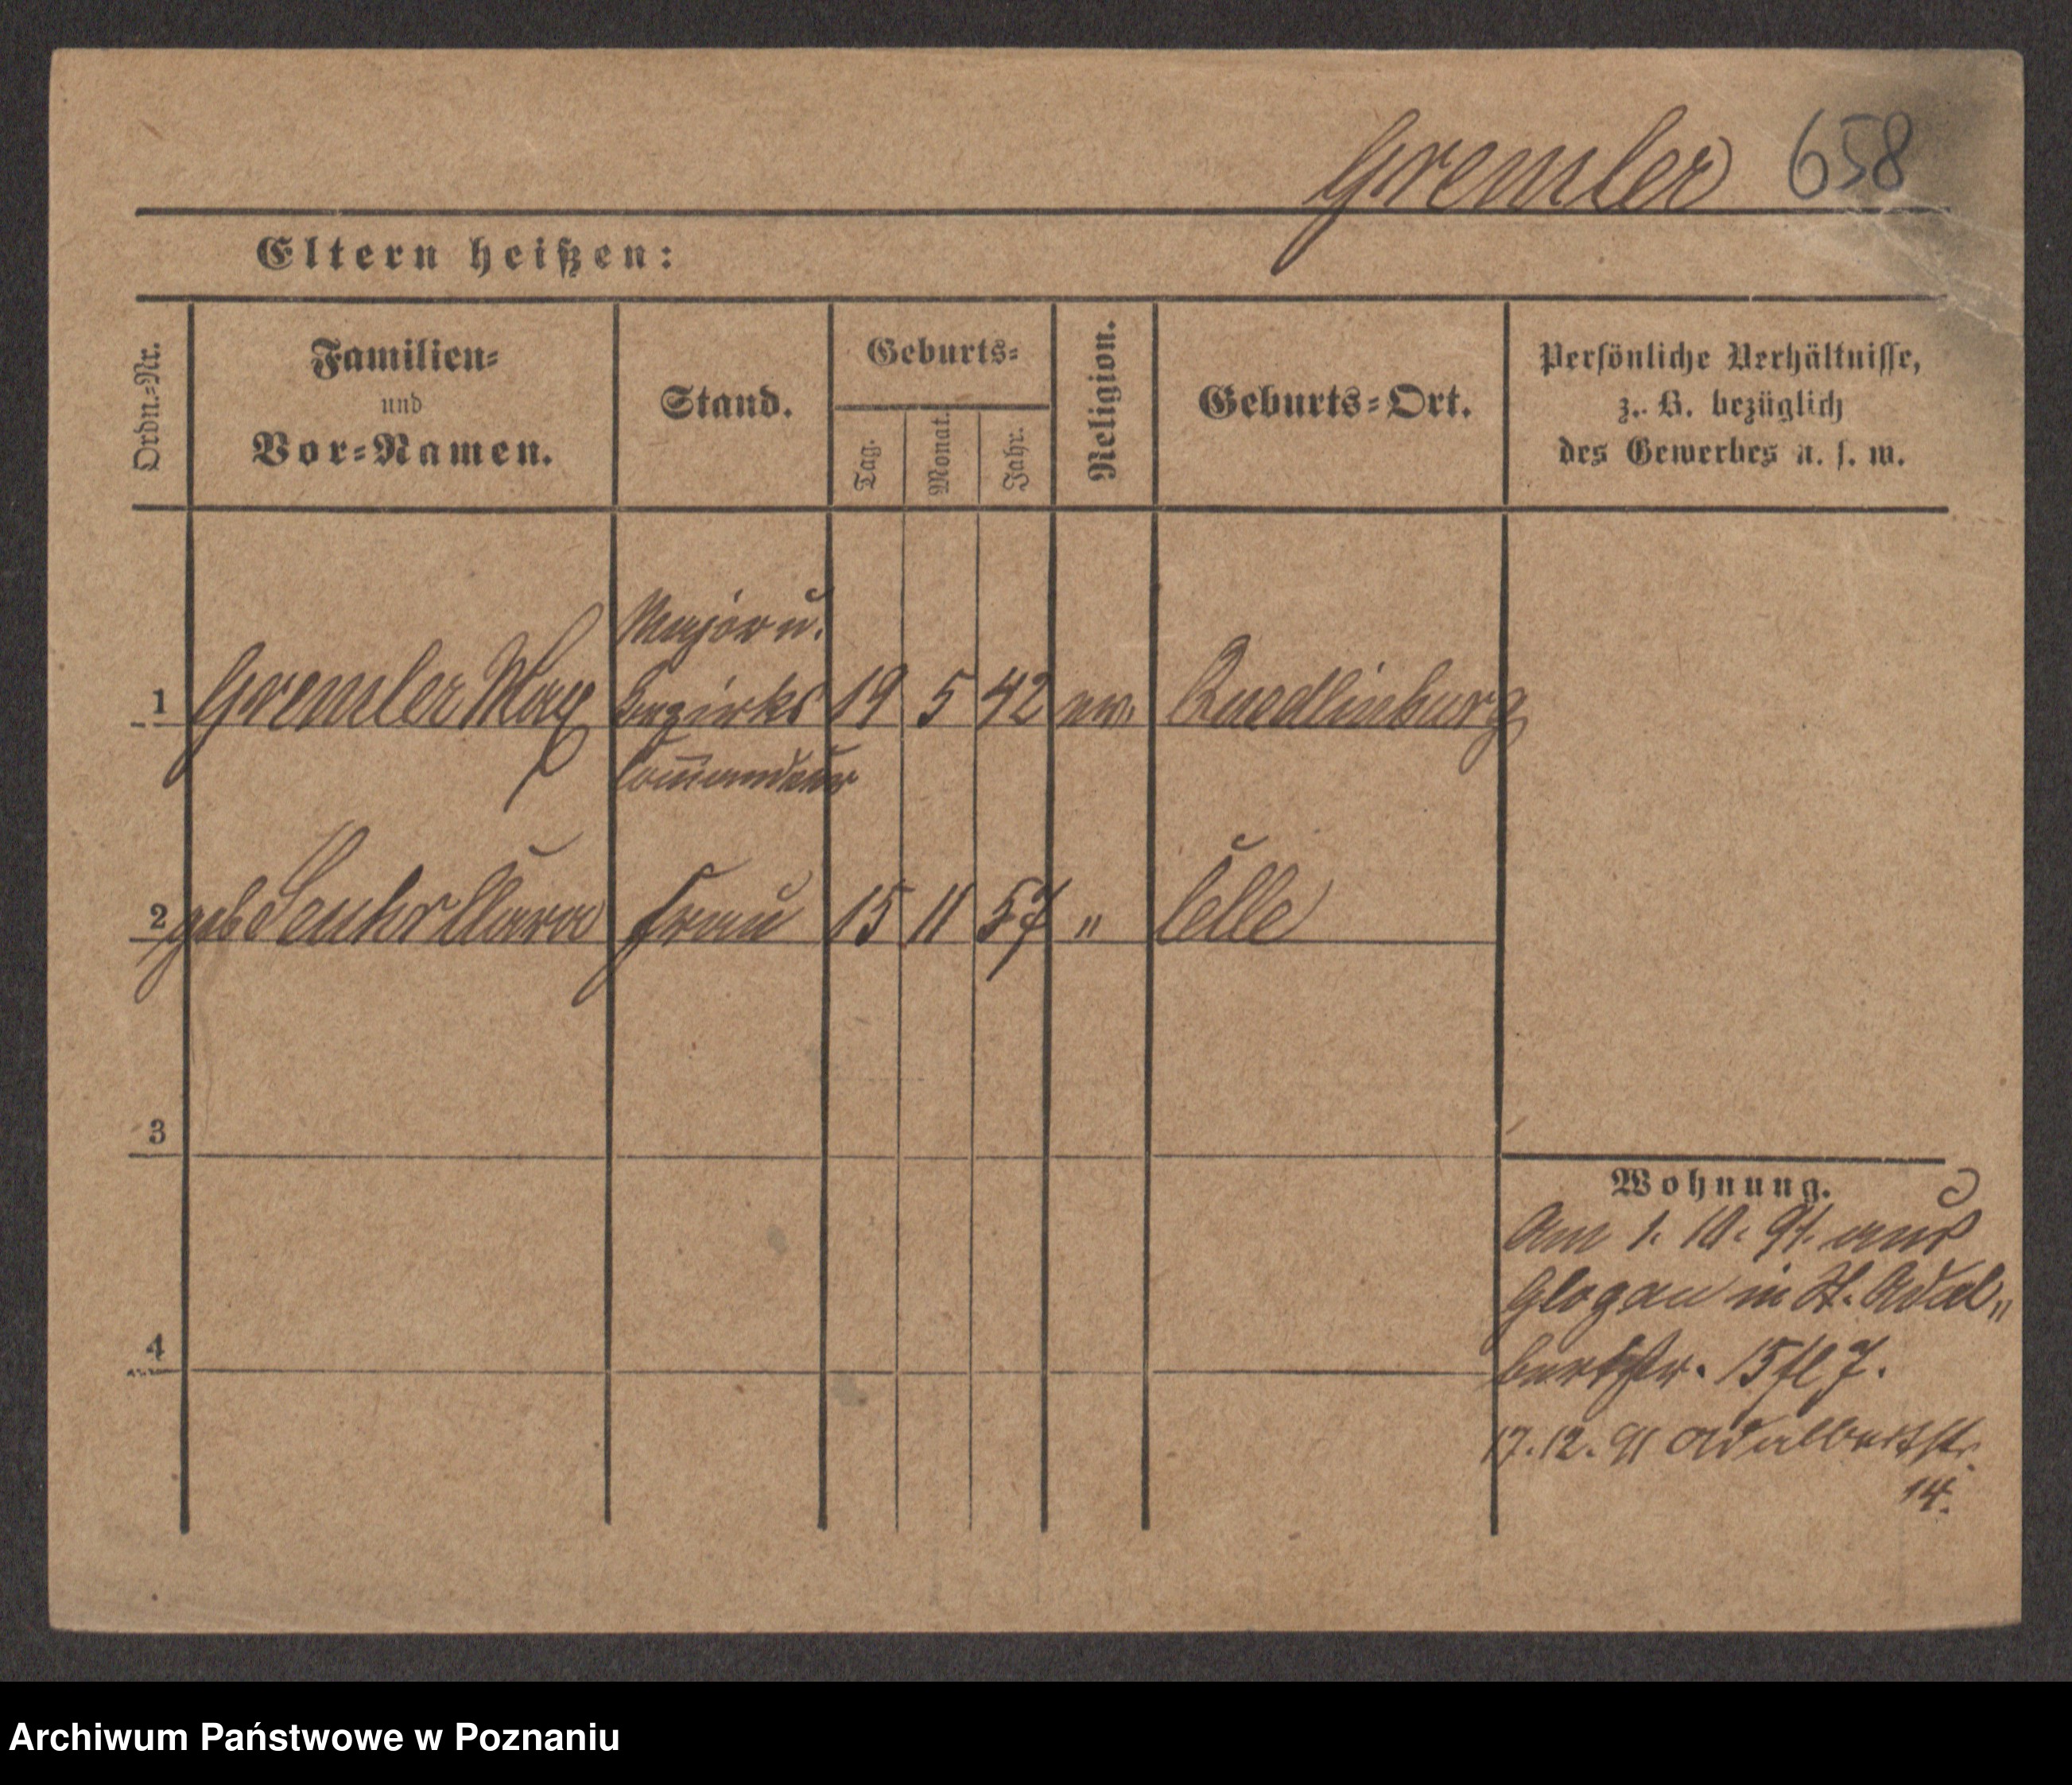 Gremler 658
Eltern heißen:
Ordn.-Nr.
Familien-
und
Vor-Namen.
Stand.
Geburts-
Tag.
Monat.
Jahr.
Religion.
Geburts-Ort.
Persönliche Verhältnisse,
z. B. bezüglich
des Gewerbes u. s. w.
Major u.
1 Gremler Max Bezirks 19 5 42 ev. Quedlinburg
Commandeur
2 geb Clara Frau 15 11 57 " Celle
3
Wohnung.
Am 1. 10. 91. aus
Glogau in St. Adal"
4
bertstr. 15 fl 7.
17. 12. 91 Adalbertstr.
14.
Archiwum Państwowe w Poznaniu